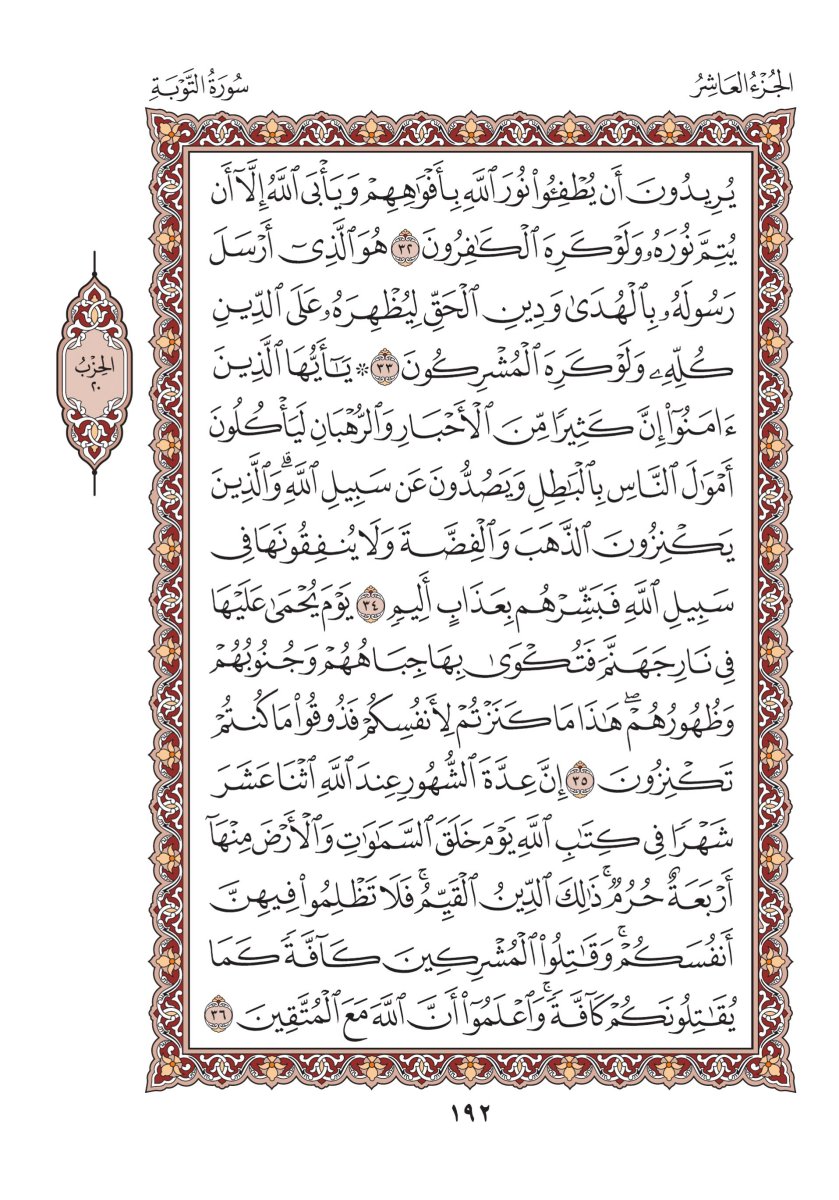 الجُزْءُ العَاشِرُ
سُورَةُ التَّوْبَةِ
يُرِيدُونَ أَن يُطْفِـُٔوا۟ نُورَ ٱللَّهِ بِأَفْوَٰهِهِمْ وَيَأْبَى ٱللَّهُ إِلَّآ أَن
يُتِمَّ نُورَهُۥ وَلَوْ كَرِهَ ٱلْكَـٰفِرُونَ ٣٢ هُوَ ٱلَّذِىٓ أَرْسَلَ
رَسُولَهُۥ بِٱلْهُدَىٰ وَدِينِ ٱلْحَقِّ لِيُظْهِرَهُۥ عَلَى ٱلدِّينِ
كُلِّهِۦ وَلَوْ كَرِهَ ٱلْمُشْرِكُونَ ٣٣ ۞ يَـٰٓأَيُّهَا ٱلَّذِينَ
ءَامَنُوٓا۟ إِنَّ كَثِيرًا مِّنَ ٱلْأَحْبَارِ وَٱلرُّهْبَانِ لَيَأْكُلُونَ
أَمْوَٰلَ ٱلنَّاسِ بِٱلْبَـٰطِلِ وَيَصُدُّونَ عَن سَبِيلِ ٱللَّهِ ۗ وَٱلَّذِينَ
يَكْنِزُونَ ٱلذَّهَبَ وَٱلْفِضَّةَ وَلَا يُنفِقُونَهَا فِى
سَبِيلِ ٱللَّهِ فَبَشِّرْهُم بِعَذَابٍ أَلِيمٍ ٣٤ يَوْمَ يُحْمَىٰ عَلَيْهَا
فِى نَارِ جَهَنَّمَ فَتُكْوَىٰ بِهَا جِبَاهُهُمْ وَجُنُوبُهُمْ
وَظُهُورُهُمْ ۖ هَـٰذَا مَا كَنَزْتُمْ لِأَنفُسِكُمْ فَذُوقُوا۟ مَا كُنتُمْ
تَكْنِزُونَ ٣٥ إِنَّ عِدَّةَ ٱلشُّهُورِ عِندَ ٱللَّهِ ٱثْنَا عَشَرَ
شَهْرًا فِى كِتَـٰبِ ٱللَّهِ يَوْمَ خَلَقَ ٱلسَّمَـٰوَٰتِ وَٱلْأَرْضَ مِنْهَآ
أَرْبَعَةٌ حُرُمٌ ۚ ذَٰلِكَ ٱلدِّينُ ٱلْقَيِّمُ ۚ فَلَا تَظْلِمُوا۟ فِيهِنَّ
أَنفُسَكُمْ ۚ وَقَـٰتِلُوا۟ ٱلْمُشْرِكِينَ كَآفَّةً كَمَا
يُقَـٰتِلُونَكُمْ كَآفَّةً ۚ وَٱعْلَمُوٓا۟ أَنَّ ٱللَّهَ مَعَ ٱلْمُتَّقِينَ ٣٦
الحِزْبُ
٢٠
١٩٢